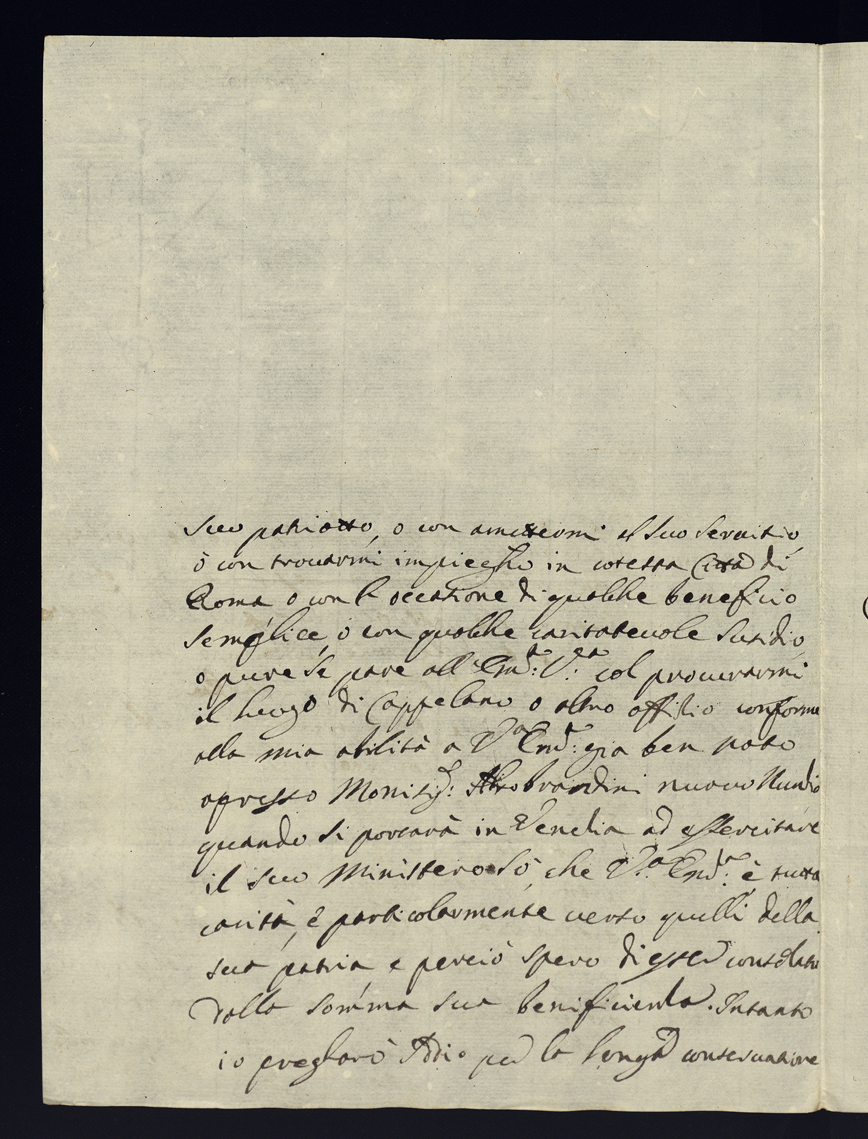 suo patriotto, o con ametermi al suo Servitio,
ò con trovarmi impiegho in cotesta Città di
Roma o con l'occasione di qualche beneficio
semplice, o con qualche caritatevole susidio,
o pure se pare all' Em.ª V.ª col procurarmi
il luogo di Cappelano o altro offitio conforme
alla mia abilità a V.ª Em.ª gia ben noto
apresso Monsig.: Aldobrandini nuovo Nuntio
quando si portarà in Venetia ad essercitare
il suo Ministero Sò che V.ª Em.ª è tutta
carità, è particolarmente verso quelli della
sua patria e perciò spero di esser consolato
dalla som̃ma sua benificienza. Intanto
io pregharò Iddio per la longa conservatione